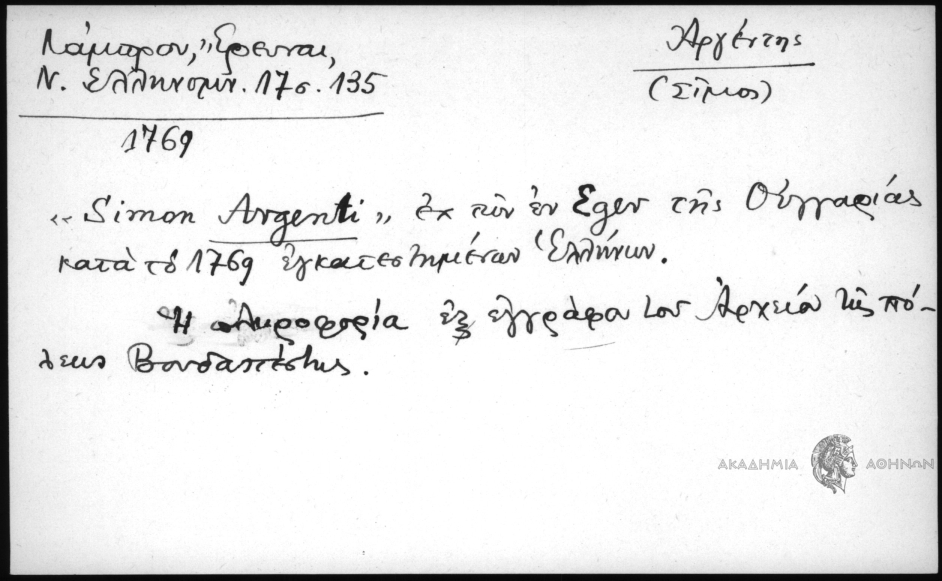 Λάμπρου, "Έρευναι,
Ν. Ἑλληνομν. 17 σ. 135
1769
Ἀργέντης
(Σῖμος)
«Simon Argenti» ἐκ τῶν ἐν Eger τῆς Οὑγγαρίας
κατὰ τὸ 1769 ἐγκατεστημένων Ἑλλήνων.
Ἡ πληροφορία ἐξ ἐγγράφου τοῦ Ἀρχείου τῆς πό-
λεως Βουδαπέστης.
ΑΚΑΔΗΜΙΑ ΑΘΗΝΩΝ